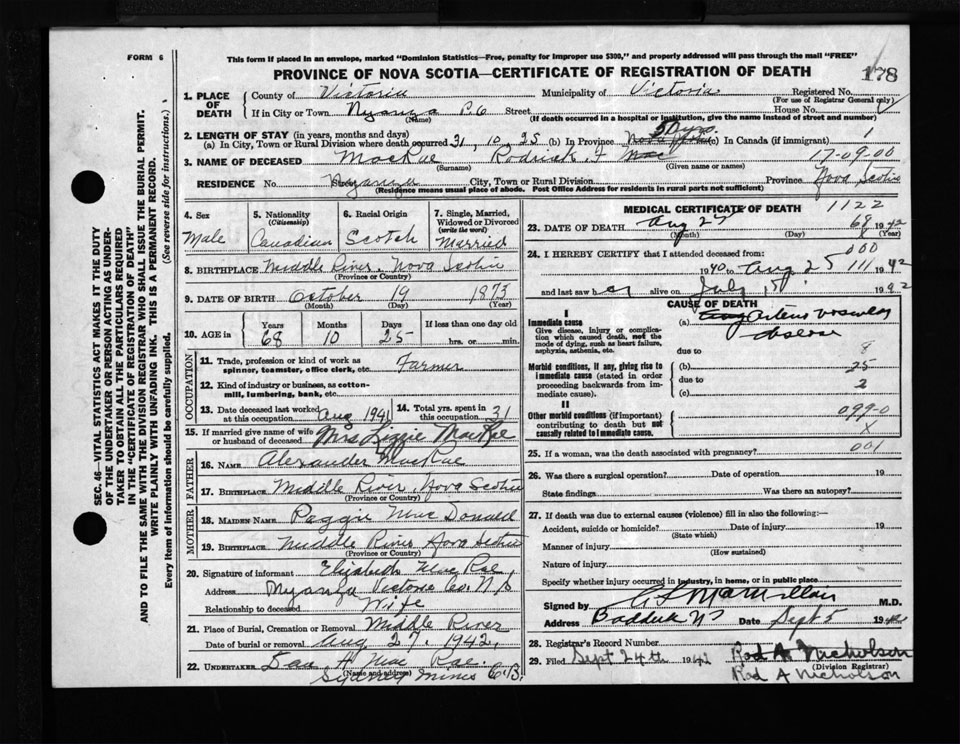 FORM 6
This form if placed in an envelope, marked "Dominion Statistics—Free, penalty for improper use $300," and properly addressed will pass through the mail "FREE"
PROVINCE OF NOVA SCOTIA—CERTIFICATE OF REGISTRATION OF DEATH
178
1. PLACE OF DEATH
County of Victoria Municipality of Victoria Registered No.
(For use of Registrar General only)
If in City or Town Nyanza P.O Street House No.
(Name) (If death occurred in a hospital or institution, give the name instead of street and number)
2. LENGTH OF STAY (in years, months and days)
(a) In City, Town or Rural Division where death occurred 31, 10, 25 (b) In Province (c) In Canada (if immigrant)
3. NAME OF DECEASED MacRae Rodrick F
17-09-00
(Surname) (Given name or names)
RESIDENCE No. Street Nyanza City, Town or Rural Division Province Nova Scotia
(Residence means usual place of abode. Post Office Address for residents in rural parts not sufficient)
4. Sex
Male
5. Nationality (Citizenship)
Canadian
6. Racial Origin
Scotch
7. Single, Married, Widowed or Divorced (write the word)
Married
8. BIRTHPLACE Middle River, Nova Scotia
(Province or Country)
9. DATE OF BIRTH October 19 1873
(Month) (Day) (Year)
10. AGE in Years Months Days If less than one day old
68 10 25 hrs. or min.
OCCUPATION
11. Trade, profession or kind of work as spinner, teamster, office clerk, etc. Farmer
12. Kind of industry or business, as cotton-mill, lumbering, bank, etc.
13. Date deceased last worked at this occupation Aug 1941
14. Total yrs. spent in this occupation 31
15. If married give name of wife or husband of deceased Mrs Lizzie MacRae
FATHER
16. NAME Alexander MacRae
17. BIRTHPLACE Middle River, Nova Scotia
(Province or Country)
MOTHER
18. MAIDEN NAME Paggie Mac Donald
19. BIRTHPLACE Middle River Nova Scotia
(Province or Country)
20. Signature of informant Elizabeth MacRae
Address Nyanza Victoria Co. N.S
Relationship to deceased Wife
21. Place of Burial, Cremation or Removal Middle River
Date of burial or removal Aug 27, 1942
22. UNDERTAKER Dan H Mac Rae.
(Name and address)
Sydney Mines C.B.
MEDICAL CERTIFICATE OF DEATH
1122
23. DATE OF DEATH Aug 25 1942
(Month) (Day) (Year)
24. I HEREBY CERTIFY that I attended deceased from:
000
1940 to Aug 25 1942
111
and last saw h alive on July 1942
CAUSE OF DEATH
I
Immediate cause
Give disease, injury or complication which caused death, not the mode of dying, such as heart failure, asphyxia, asthenia, etc.
(a)
disease
due to
8
Morbid conditions, if any, giving rise to immediate cause (stated in order proceeding backwards from immediate cause).
(b)
25
due to
2
(c)
II
Other morbid conditions (if important) contributing to death but not causally related to immediate cause.
099-0
X
25. If a woman, was the death associated with pregnancy?
001
26. Was there a surgical operation? Date of operation 19
State findings Was there an autopsy?
27. If death was due to external causes (violence) fill in also the following:—
Accident, suicide or homicide? Date of injury 19
(State which)
Manner of injury
(How sustained)
Nature of injury
Specify whether injury occurred in industry, in home, or in public place
Signed by MacMillan M.D.
Address Baddeck NS Date Sept 5 19
28. Registrar's Record Number
29. Filed Sept 24th 1942 Rod A Nicholson
(Division Registrar)
Rod A Nicholson
SEC. 46—VITAL STATISTICS ACT MAKES IT THE DUTY
OF THE UNDERTAKER OR PERSON ACTING AS UNDER-
TAKER TO OBTAIN ALL THE PARTICULARS REQUIRED
IN THE "CERTIFICATE OF REGISTRATION OF DEATH"
AND TO FILE THE SAME WITH THE DIVISION REGISTRAR WHO SHALL ISSUE THE BURIAL PERMIT.
WRITE PLAINLY WITH UNFADING INK. THIS IS A PERMANENT RECORD.
Every item of information should be carefully supplied. (See reverse side for instructions.)